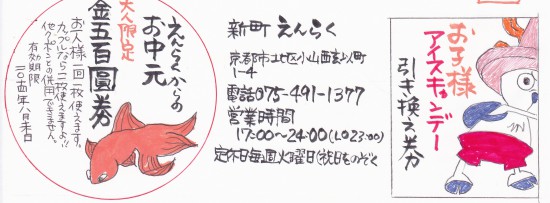 大人限定
えんらくからの
お中元
金五百圓券
お一人様一回一枚使えます。
カップルなら二枚使えますよ!!
他クーポンとの併用できません。
有効期限
二〇一四年八月末日
新町 えんらく
京都市北区小山西玄以町
1-4
電話075-491-1377
営業時間
17:00~24:00(LO23:00)
定休日毎週火曜日(祝日をのぞく
お子様
アイスキャンデー
引き換え券